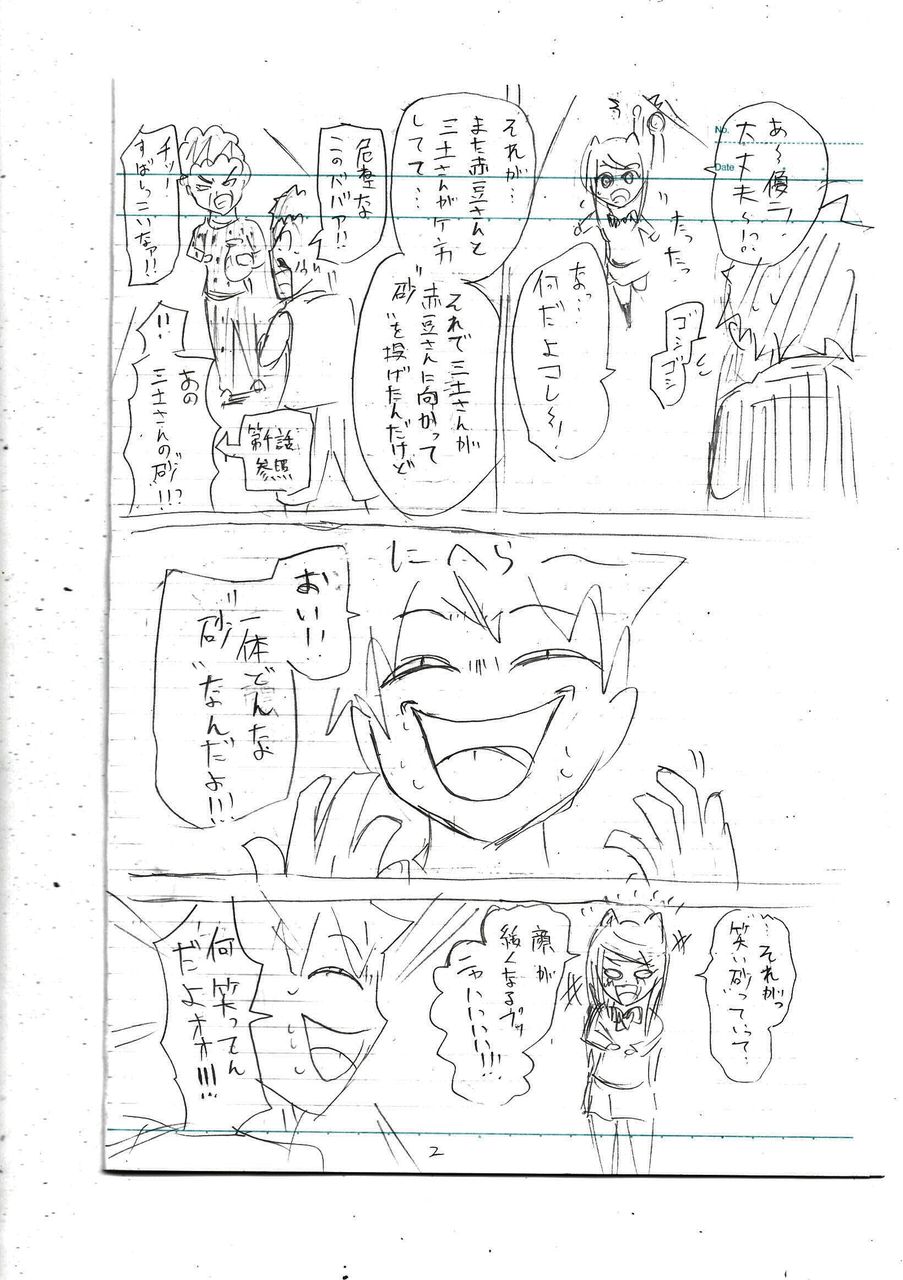 No.
Date
あ〜優二
大丈夫〜!?
たったっ
ゴシゴシ
なっ…
何だよコレ〜!
それが…
また赤豆さんと
三土さんがケンカ
してて…
それで三土さんが
赤豆さんに向かって
〝砂〟を投げたんだけど
危ねえな
このババア!!
チッ
すばしっこいなァ!!
第十話
参照
!!
あの
三土さんの砂!!?
にへら
おい!!
一体どんな
〝砂〟なんだよ!!!
…それがっ
笑い砂っていって…
顔が
緩くなるヴッ
ニャハハハハ!!!
何笑ってん
だよオオ!!!
2